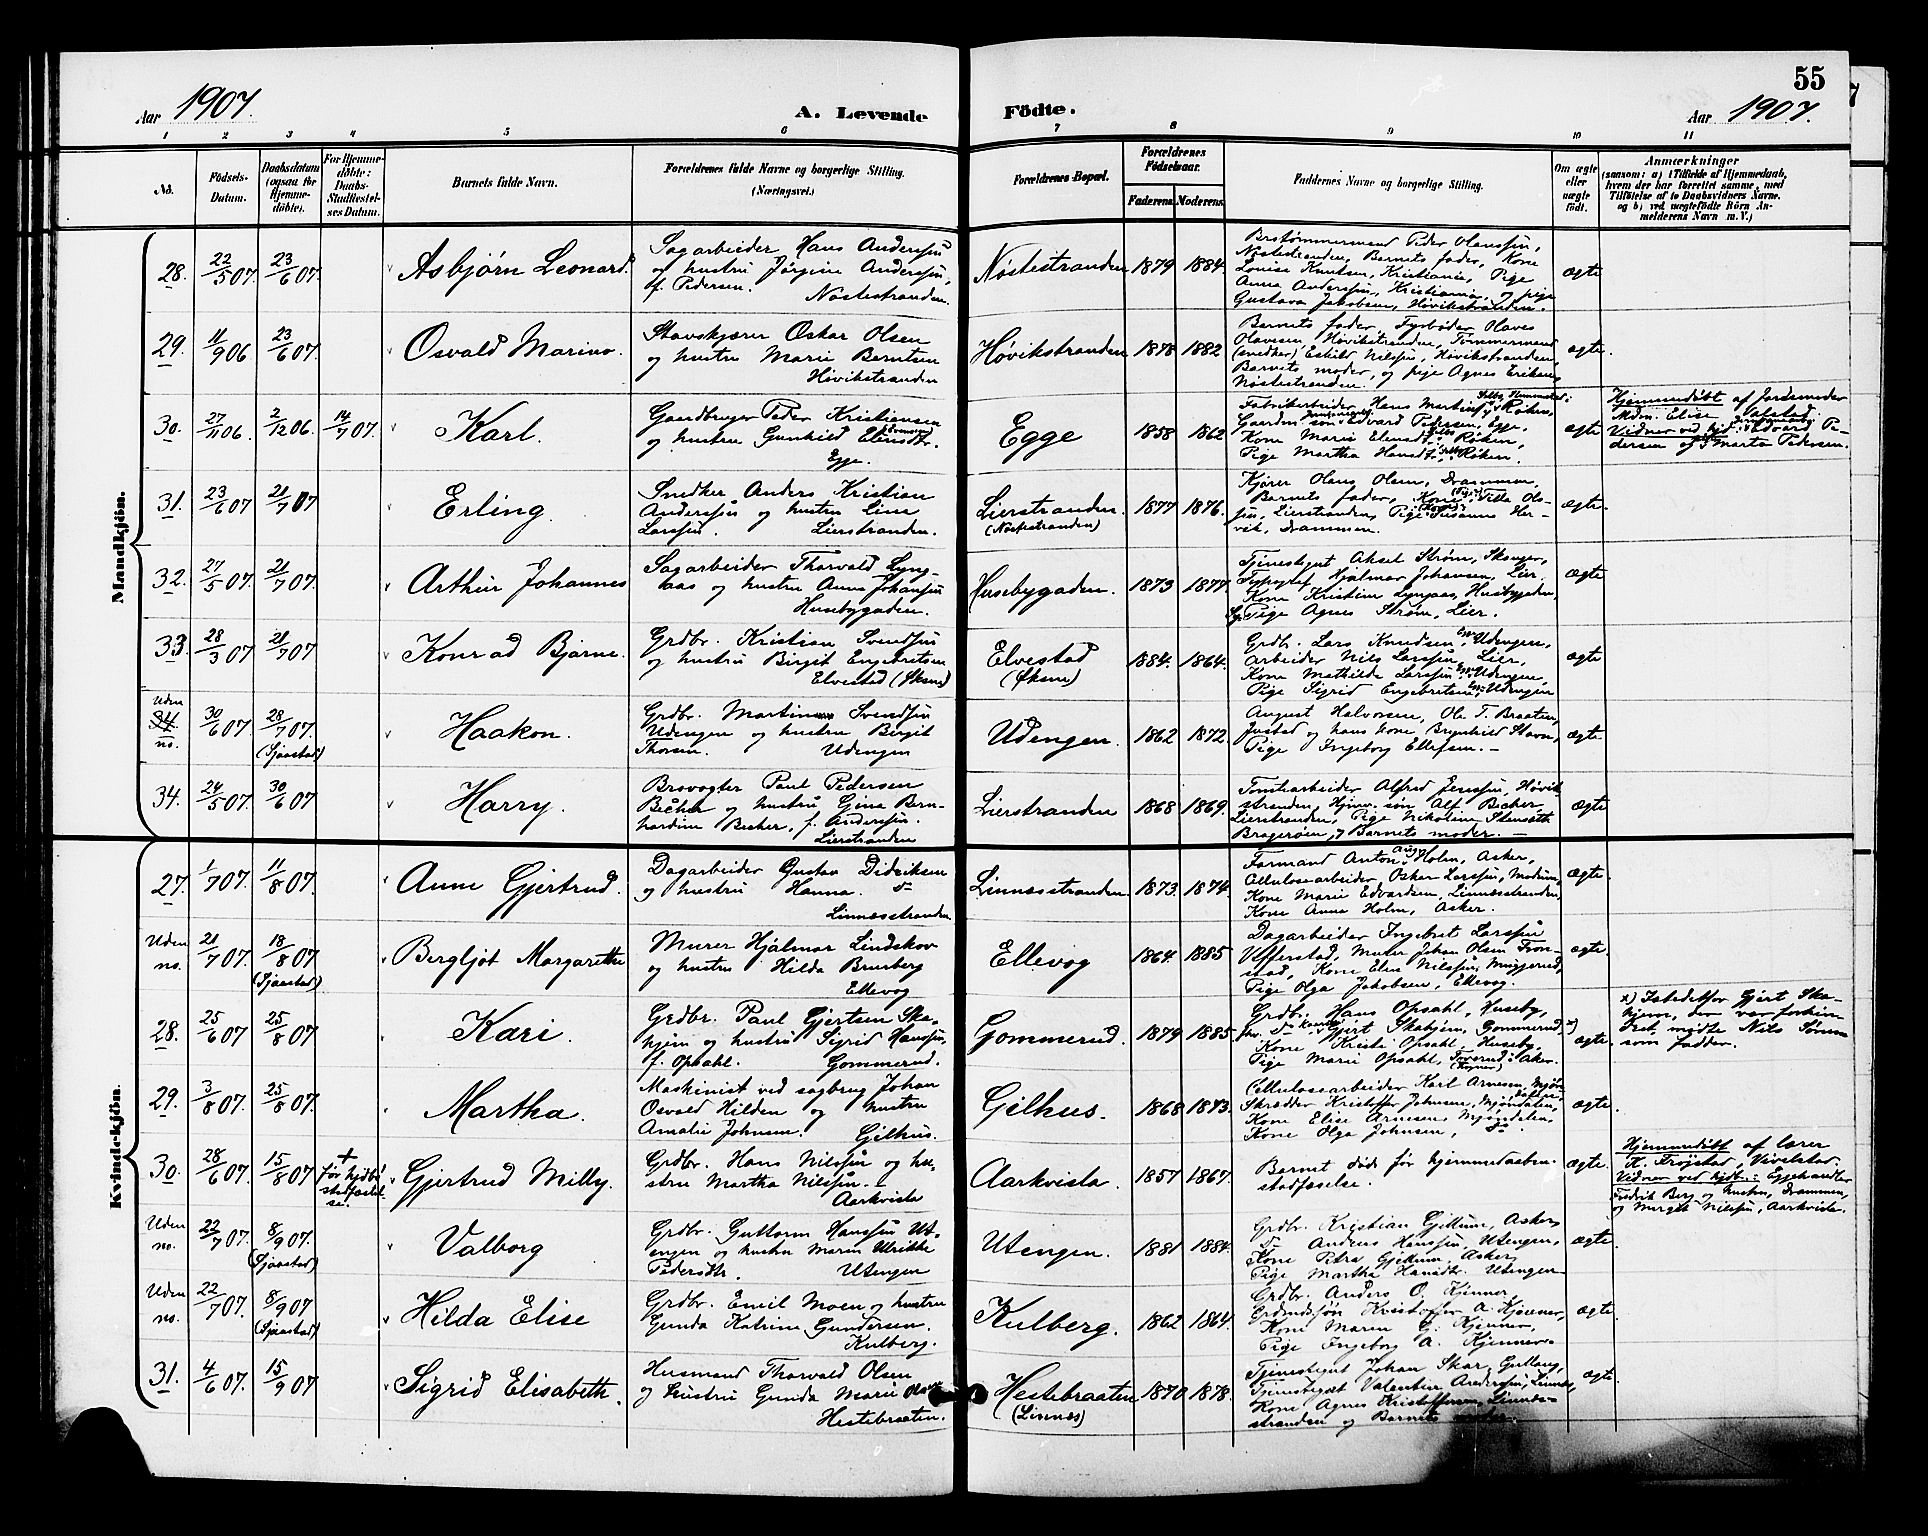 55
Aar 1907.
A. Levende
Födte.
Aar 1907.
1 2 3 4 5 6 7 8 9 10 11
No.
Födsels-
Datum.
Daabsdatum
(ogsaa for
Hjemme-
döbte).
For Hjemme-
döbte:
Daabs-
Stadfæstel-
ses Datum.
Barnets fulde Navn.
Forældrenes fulde Navne og borgerlige Stilling.
(Næringsvei.)
Forældrenes Bopæl.
Forældrenes
Födselsaar.
Faderens. Moderens.
Faddernes Navne og borgerlige Stilling.
Om ægte
eller
uægte
födt.
Anmærkninger
(saasom: a) i Tilfælde af Hjemmedaab,
hvem der har forrettet samme, med
Tilföielse af to Daabsvidners Navne.
og b) ved uægtefödte Börn An-
melderens Navn m. V.)
Mandkjön.
28. 22/5 07. 23/6 07. Asbjørn Leonard.
Sagarbeider Hans Anderssen
og hustru Jørgine Anderssen,
f. Pedersen. Nøstestranden.
Nøstestranden 1879 1884.
Brotømmermand Peder Olaussen,
Nøstestranden, Barnets fader, Kone
Louise Knutsen, Kristiania, Pige
Anna Anderssen, Kristiania og pige
Gustava Jakobsen, Høvikstranden.
ægte
29. 11/9 06 23/6 07. Osvald Marino.
Stavskjærer Oskar Olsen
og hustru Marie Berntsen
Høvikstranden
Høvikstranden 1878 1882
Barnets fader, Fyrbøder Olaves
Olavesen, Høvikstranden, Tømmermand
(snedker) Eskild Nilssen, Høvikstranden,
Barnets moder, og pige Agnes Eriksen,
Nøstestranden.
ægte.
30. 27/11 06. 2/12 06. 14/7 07. Karl.
Gaardbruger Peder Kristiansen
og hustru Gunhild Elensdtr.
Egge.
Egge 1858 1862
Fabrikarbeider Hans Martinsen, Røiken,
Gaardm. søn Edvard Pedersen, Egge,
Kone Marie Elensdtr., Røken,
Pige Martha Hansdtr., Røken.
ægte
Hjemmedøbt af Jordemoder
Mdm. Elise
Vidner ved hjd.: Edvard Pe-
dersen og Marta Pedersen.
31. 23/6 07 21/7 07 Erling.
Snedker Anders Kristian
Anderssen og hustru Lina
Larssen. Lierstranden.
Lierstranden. 1877 1876.
(Nøstestranden)
Kjører Olaus Olsen, Drammen,
Barnets fader, Kone Tilla Ols-
sen, Lierstranden, Pige Susanna Her-
vik, Drammen.
ægte.
32. 27/5 07. 21/7 07. Arthur Johannes
Sagarbeider Thorvald Lyng-
aas og hustru Anna Johanssen
Husebygaden.
Husebygaden. 1873 1877.
Tjenestegut Aksel Strøm, Skoger,
Typograf Hjalmar Johansen, Lier.
Kone Kristine Lyngaas, Husebygaden,
Pige Agnes Strøm, Lier.
ægte
33. 28/3 07 21/7 07. Konrad Bjarne.
Grdbr. Kristian Svendsen
og hustru Birgit Engebretsen
Elvestad (Øksne)
Elvestad 1884. 1864.
(Øksne)
Grdbr. Lars Knudsen, Udengen,
Arbeider Nils Larssen, Lier,
Kone Mathilde Larssen, Udengen,
Pige Sigrid Engebretsen, Udengen
ægte
Uden
no. 30/6 07 28/7 07. Haakon.
(Sjaastad)
Grdbr. Martin Svendsen
Udengen og hustru Birgit
Thorsen. Udengen
Udengen. 1862 1872.
August Halvorsen, Ole T. Braaten,
Justad og hans kone Brynhild Stavn,
Pige Ingeborg Ellefsen.
ægte.
34. 24/5 07. 30/6 07 Harry.
Brovogter Paul Pedersen
Becher og hustru Gina Bern-
hardine Becher, f. Anderssen.
Lierstranden
Lierstranden 1868 1869.
Tomtearbeider Alfred Jenssen, Høvik-
stranden, Hjmv. søn Alf. Becher
Lierstranden, Pige Nikoline Stenseth
Bragerøen, og Barnets moder.
ægte
Kvindekjön.
27. 1/7 07. 11/8 07. Anne Gjertrud.
Dagarbeider Gustav Didriksen
og hustru Hanna. do
Linnesstranden
Linnesstranden 1873. 1874.
Formand Anton Aug. Holm, Asker,
Cellulosearbeider Oskar Larssen, Modum,
Kone Marie Edvardsen, Linnesstranden,
Kone Anna Holm, Asker.
ægte
Uden
no. 21/7 07. 18/8 07 Bergljot Margarethe
(Sjaastad)
Murer Hjalmar Lindskov
og hustru Hilda Brusberg
Ellevog
Ellevog 1864. 1885
Dagarbeider Ingebret Larssen
Vefferstad, Murer Johan Olsen Tron-
stad, Kone Elise Nilssen, Muggerud,
Pige Olga Jakobsen, Ellevog.
ægte
28. 25/6 07. 25/8 07 Kari.
Grdbr. Paul Gjertsen Ska-
hjem og hustru Sigrid Hanssen,
f. Opsahl. Gommerud.
Gommerud 1879 1885.
Grdbr. Hans Opsahl, Huseby,
do Gjert Skahjem, Gommerud x)
Kone Kristi Opsahl, Huseby,
Pige Marie Opsahl, Asker.
ægte.
x) Istedetfor Gjert Ska-
hjem, der var forhin-
dret, mødte Nils
som fadder.
29. 3/8 07. 25/8 07. Martha.
Maskinist ved sagbrug Johan
Osvald Hilden og hustru
Amalie Johnsen. Gilhus.
Gilhus. 1868 1873.
Cellulosearbeider Karl Arnesen, Mjøn-
dalen,
Skrædder Kristoffer Johnsen, Mjøndalen,
Kone Elise Arnesen, Mjøndalen,
Kone Olga Johnsen, do.
ægte.
30. 28/6 07. 15/8 07 + før hjdbs
stadfæstel-
se. Gjertrud Milly.
Grdbr. Hans Nilssen og hu-
stru Martha Nilssen.
Aarkvisla
Aarkvisla. 1857 1867.
Barnet døde før hjemmedaaben-
stadfæselse.
ægte.
Hjemmedøbt af lærer
K. Frøistad, Vivelstad.
Vidner ved hjdt.: Egghandler
Fredrik Berg og hustru, Drammen,
og Margit Nilssen, Aarkvisla.
Uden
no. 22/7 07. 8/9 07. Valborg
(Sjaastad)
Grdbr. Guttorm Hanssen Ut-
engen og hustru Maren Ulrikke
Pedersdtr. Utengen
Utengen. 1881 1884.
Grdbr. Kristian Gjellum, Asker,
do Anders Hanssen, Utengen,
Kone Petra Gjellum, Asker,
Pige Martha Hansdtr. Utengen
ægte.
Uden
no. 22/7 07. 8/9 07 Hilda Elise
(Sjaastad)
Grdbr. Emil Moen og hustru
Gunda Katrine Gundersen.
Kulberg.
Kulberg. 1862 1864.
Grdbr. Anders O. Kjenner,
Grdmdssøn Kristoffer A. Kjenner,
Kone Maren G. Kjenner,
Pige Ingeborg A. Kjenner.
ægte.
31. 4/6 07. 15/9 07 Sigrid Elisabeth.
Husmand Thorvald Olsen
og hustru Gunda Marie Olsen
Hestebraaten.
Hestebraaten 1870 1878.
(Linnes)
Tjenestegut Johan Skar, Gullaug,
Tjenestegut Valentin Anderssen, Linnes,
Kone Agnes Kristoffersen, Linnes-
stranden og Barnets moder.
ægte.